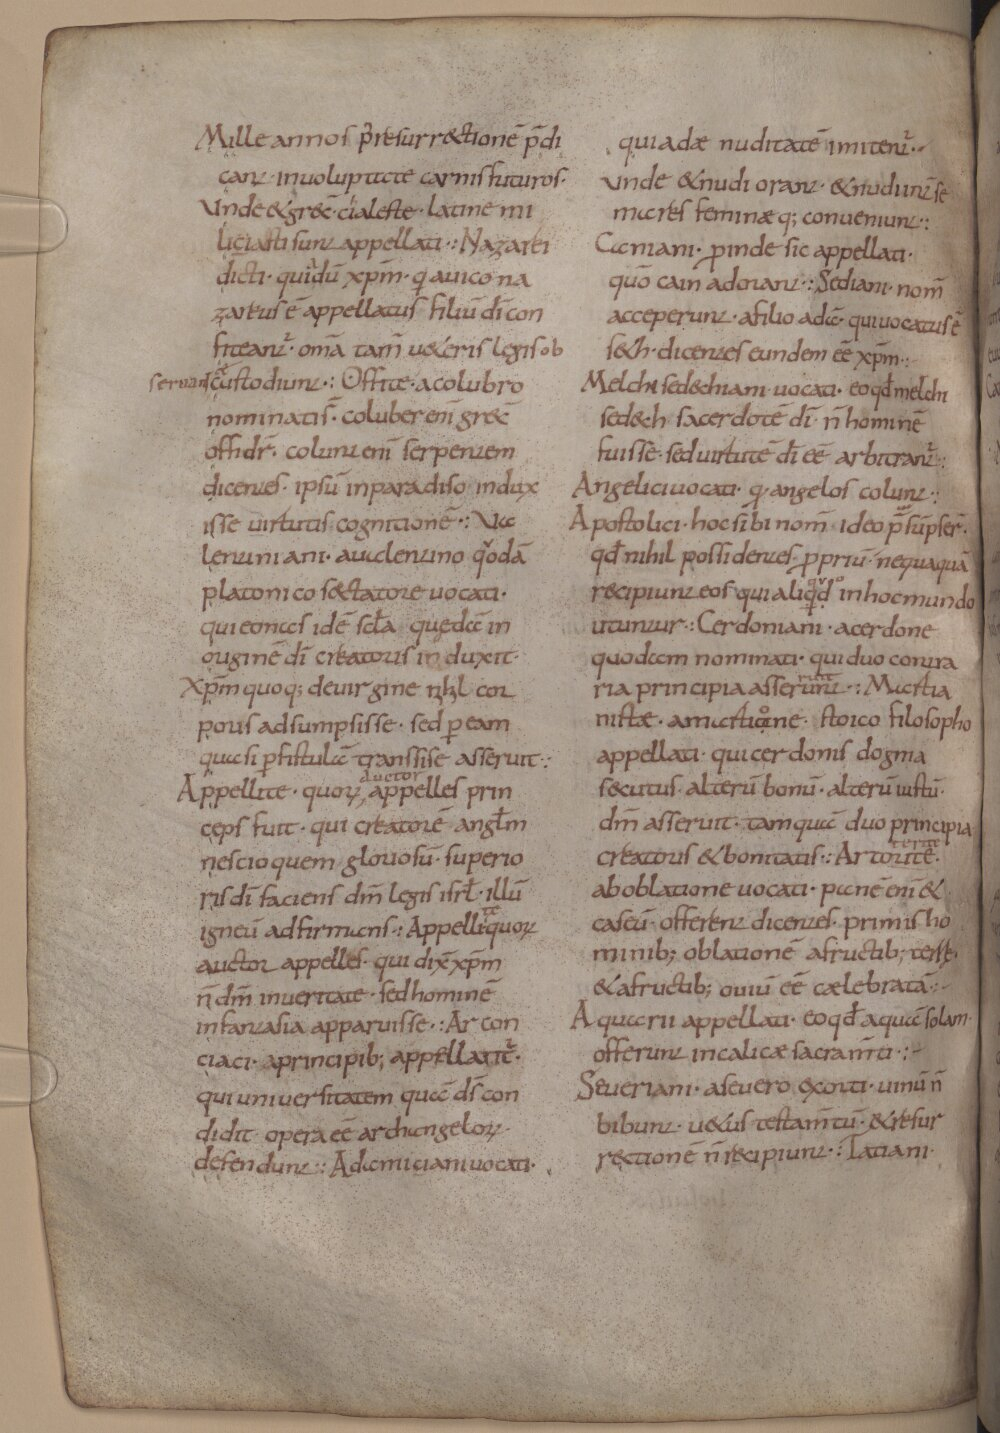 Mille annos p̄ resurrectionē p̄di
cant· in voluptate carnis futuros·
Unde & grec̄ cialeste· latine mi
liciasti sunt appellati·: Nazarei
dicti· qui dū xp̄m· q̄ a uico na
zareus ē appellatus filiū dī con
fiteant̄· om̄a tam̄ ueteris legis ob
seruan custodiunt·: Offite· a colubro
nominatiś· coluber enī grec̄
offi dr̄· colunt enī serpentem
dicentes· ipsū in paradiso indux
isse uirtutis cognitionē·: Ua
lentiniani· a ualentino quodā
platonico sectatore uocati·
qui eonas idē scła quedā in
originē dī creatoris induxit·
Xp̄m quoq; de uirgine nihl cor
poris adsumpsisse· sed p eam
quasi p fistulā transsise asseruit·:
auctor
Appellite· quorum appelles prin
ceps fuit· qui creatorē angłm
nescio quem gloriosū· superio
ris dī faciens dm̄ legis isrł· illū
igneū adfirmans·: Appellite quorum
auctor appelles· qui dix̄ xp̄m
n̄ dm̄ in ueritate· sed hominē
in fantasia apparuisse·: Ar con
ciaci· a principib; appellatit̄·
qui uniuersitatem quā ds̄ con
didit· opera eē archangelorum·
defendunt·: Adamiciani uocati·
qui adæ nuditatē imitent̄·
Unde & nudi orant· & nudi int̄ se
mares feminæ q; conueniunt·:
Cainiani· pinde sic appellati·
quō cain adorant·: Sediani· nom̄
acceperunt· a filio adā· qui uocatus ē
seth· dicentes eundem eē xp̄m·:
Melchisedechiani· uocati· eo qd̄ melchi
sedech sacerdotē dī· n̄ hominē
fuisse· sed uirtutē dī eē arbitrant̄·:
Angelici uocati· q̄ angelos colunt·:
Apostolici· hoc sibi nom̄ ideo p̄sūpser̄·
qd̄ nihil possidentes· propriū· nequaquā
recipiunt eos qui aliqd̄ in hoc mundo
utuntur·: Cerdoniani· a cerdone
quodam nominati· qui duo contra
ria principia asserunt·: Martia
nistæ· a martione· stoico filosopho
appellati· qui cerdonis dogma
secutus· alterū bonū· alterū iustū·
dm̄ asseruit· tamquā duo principia
creatoris & bonitatis·: Artotite·
ab oblatione uocati· panē enī &
caseū· offerent dicentes· primis ho
minib; oblationē a fructib; terre·
& a fructib; ouiū eē cælebratā·:
Aquarii appellati· eo qd̄ aquā solam·
offerunt in calicæ sacram̄ti·:
Seueriani· a seuero exorti· uinū n̄
bibunt· uetus testam̄tū· & resur
rectionē n̄ recipiunt·: Tatiani·